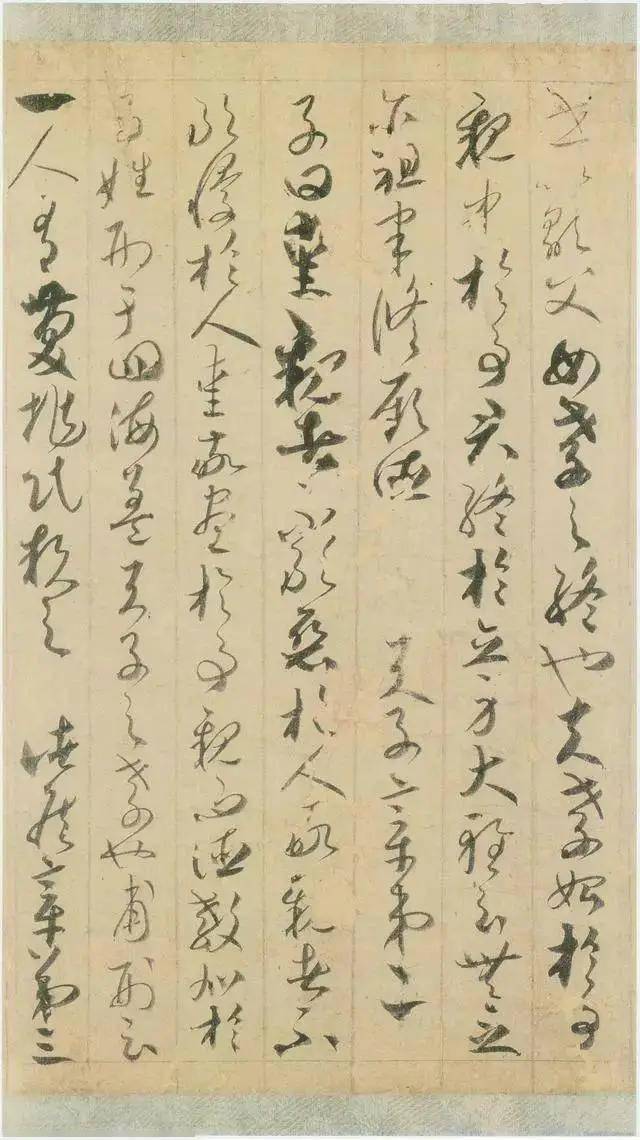 世以顯父母孝之終也夫孝始於事
親中於事君終於立身大雅云無念
尔祖聿脩厥德 天子章第二
子曰愛親者不敢惡於人敬親者不
敢慢於人愛敬盡於事親而德教加於
百姓刑于四海蓋天子之孝也甫刑云
一人有慶兆民賴之 諸侯章第三